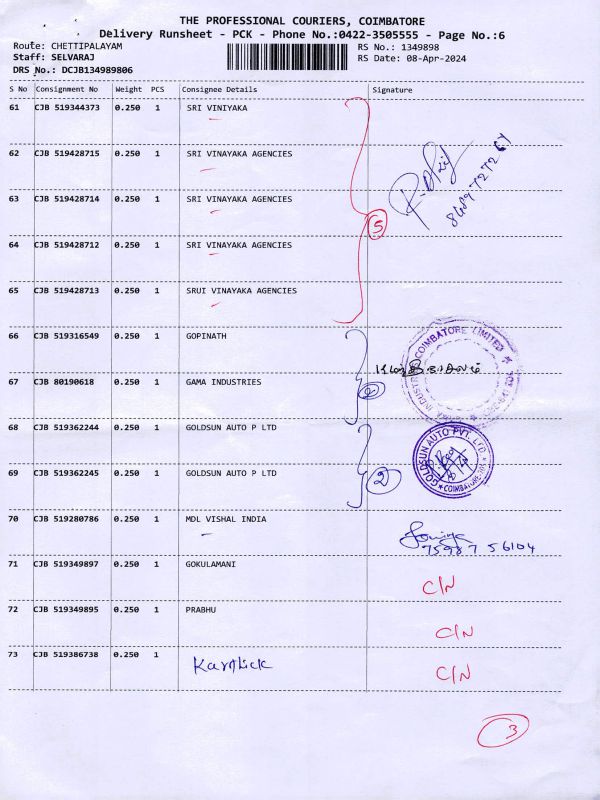 THE PROFESSIONAL COURIERS, COIMBATORE
Delivery Runsheet - PCK - Phone No.:0422-3505555 - Page No.:6
Route: CHETTIPALAYAM RS No.: 1349898
Staff: SELVARAJ RS Date: 08-Apr-2024
DRS No.: DCJB134989806
S No Consignment No Weight PCS Consignee Details Signature
61 CJB 519344373 0.250 1 SRI VINIYAKA
62 CJB 519428715 0.250 1 SRI VINAYAKA AGENCIES
63 CJB 519428714 0.250 1 SRI VINAYAKA AGENCIES
5
64 CJB 519428712 0.250 1 SRI VINAYAKA AGENCIES
65 CJB 519428713 0.250 1 SRUI VINAYAKA AGENCIES
66 CJB 519316549 0.250 1 GOPINATH
COIMBATORE LIMITED
67 CJB 80190618 0.250 1 GAMA INDUSTRIES
2
68 CJB 519362244 0.250 1 GOLDSUN AUTO P LTD
GOLDSUN AUTO PVT. LTD.
69 CJB 519362245 0.250 1 GOLDSUN AUTO P LTD
2
COIMBATORE
70 CJB 519280786 0.250 1 MDL VISHAL INDIA
75987 56104
71 CJB 519349897 0.250 1 GOKULAMANI C/N
72 CJB 519349895 0.250 1 PRABHU C/N
73 CJB 519386738 0.250 1 Karthick C/N
3